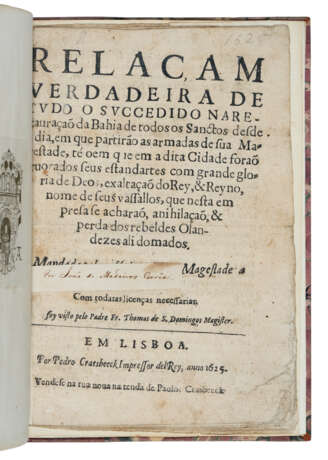 1625
RELAC,AM
VERDADEIRA DE
TVDO O SVCCEDIDO NA RE-
tauraçaõ da Bahia de todos os Sanctos desde
dia, em que partirão as armadas de sua Ma-
estade, té oem que em a dita Cidade foraõ
ruorados seus estandartes com grande glo-
ria de Deos, exaltação do Rey, & Reyno,
nome de seus vassallos, que nesta em
presa se acharaõ, anihilaçaõ, &
perda dos rebeldes Olan-
dezes ali domados.
Mandada Magestade a
por João de Medeiros Corrêa
Com todas as licenças necessarias,
foy visto pelo Padre Fr. Thomas de S. Domingos Magister.
EM LISBOA.
Por Pedro Craesbeeck Impressor del Rey, anno 1625.
Vendese na rua noua na tenda de Paulo Craesbeeck